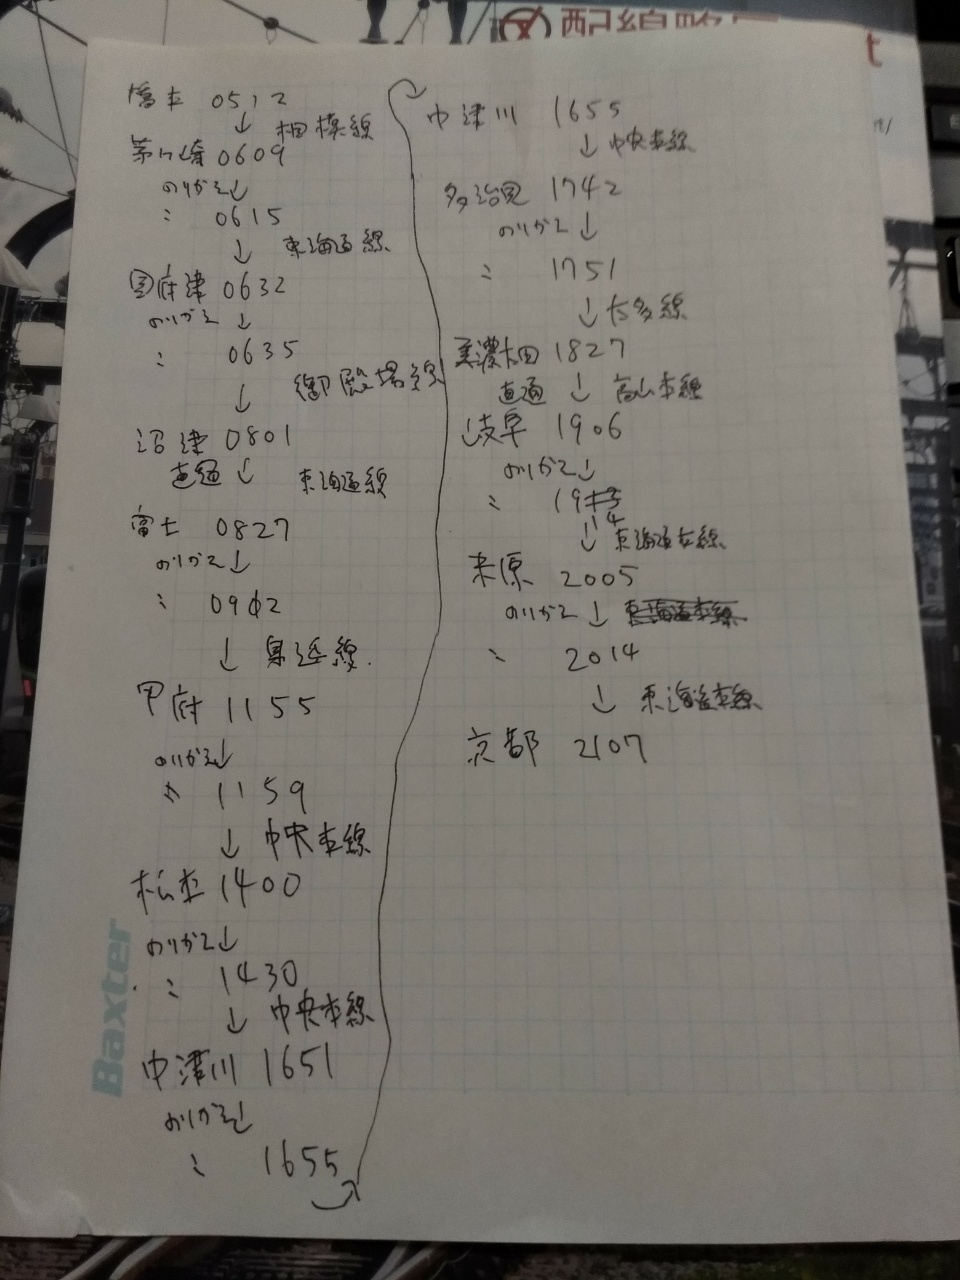 配線略図
t
橋本 0512
↓ 相模線
茅ヶ崎 0609
のりかえ↓
〃 0615
↓ 東海道線
国府津 0632
のりかえ ↓
〃 0635
↓ 御殿場線
沼津 0801
直通 ↓ 東海道線
富士 0827
のりかえ↓
〃 0902
↓ 身延線.
甲府 1155
のりかえ↓
〃 1159
↓ 中央本線
松本 1400
のりかえ↓
〃 1430
↓ 中央本線
中津川 1651
のりかえ↓
〃 1655
中津川 1655
↓ 中央本線
多治見 1742
のりかえ ↓
〃 1751
↓ 太多線
美濃太田 1827
直通 ↓ 高山本線
岐阜 1906
のりかえ↓
〃 1914
↓ 東海道本線
米原 2005
のりかえ ↓ 東海道本線
〃 2014
↓ 東海道本線
京都 2107
Baxter